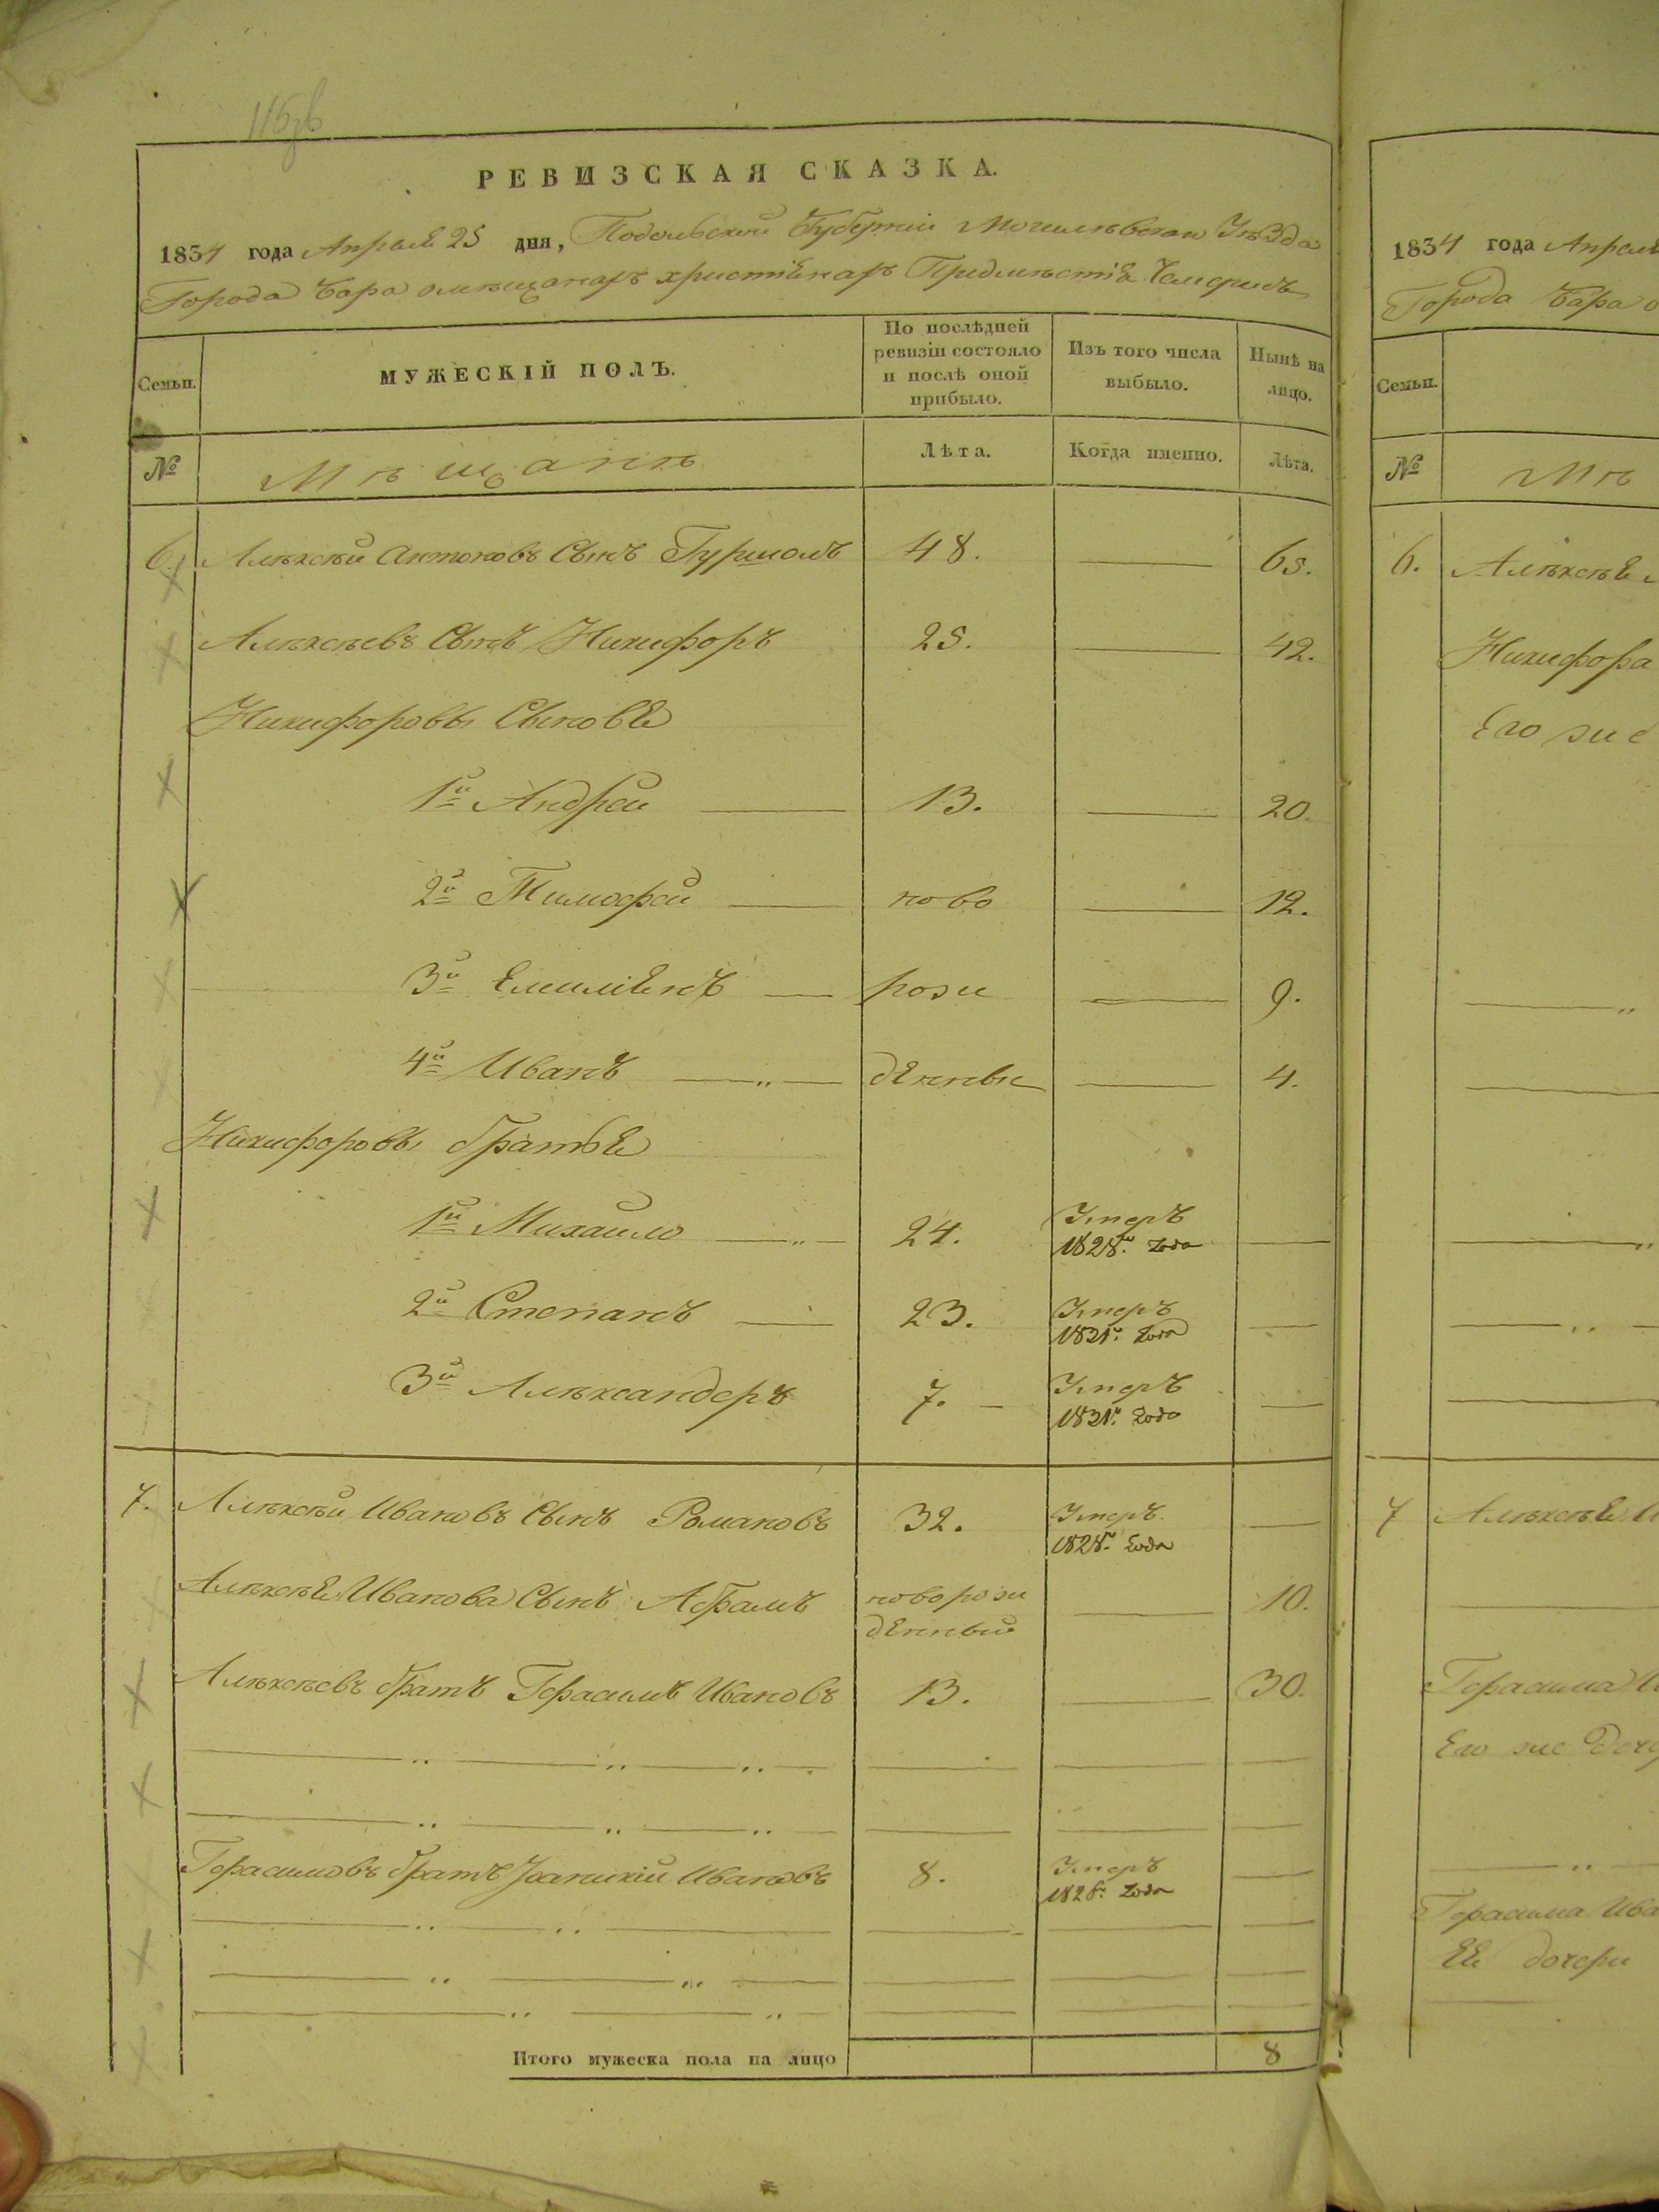 115зв
РЕВИЗСКАЯ СКАЗКА.
1834 года Апреля 25 дня, Подольской Губерніи Могилевскаго Уѣзда
Города Бара о мѣщанахъ христіянахъ Предмѣстія
Семьи.
МУЖЕСКІЙ ПОЛЪ.
По послѣдней ревизіи состояло и послѣ оной прибыло.
Изъ того числа выбыло.
Нынѣ на лицо.
№
Мѣщанѣ
Лѣта.
Когда именно.
Лѣта.
6. Алѣксѣй Антоновъ Сынъ 48. 65.
Алѣксѣевъ Сынъ Никифоръ 25. 42.
Никифоровы Сыновя
1й Андрей 13. 20.
2й Тимофей ново 12.
3й Емиліянъ рож 9.
4й Иванъ денны 4.
Никифоровы братья
1й Михайло 24. Умеръ 1828го года
2й Степанъ 23. Умеръ 1831го года
3й Алѣксандеръ 7. Умеръ 1831го года
7. Алѣксѣй Ивановъ Сынъ Романовъ 32. Умеръ 1828го года
Алѣксѣя Иванова Сынъ Абрамъ новорож денный 10.
Алѣксѣевъ братъ Герасимъ Ивановъ 13. 30.
Герасимовъ братъ Иванов 8. Умеръ 1828го года
Итого мужеска пола на лицо 8
1834 года Апреля
Города Бара о
Семьи.
№ Мѣ
6. Алѣксѣя
Никифора
Его же
7 Алѣксѣя И
Герасима И
Его же Доче
Герасима Ива
Ея дочери